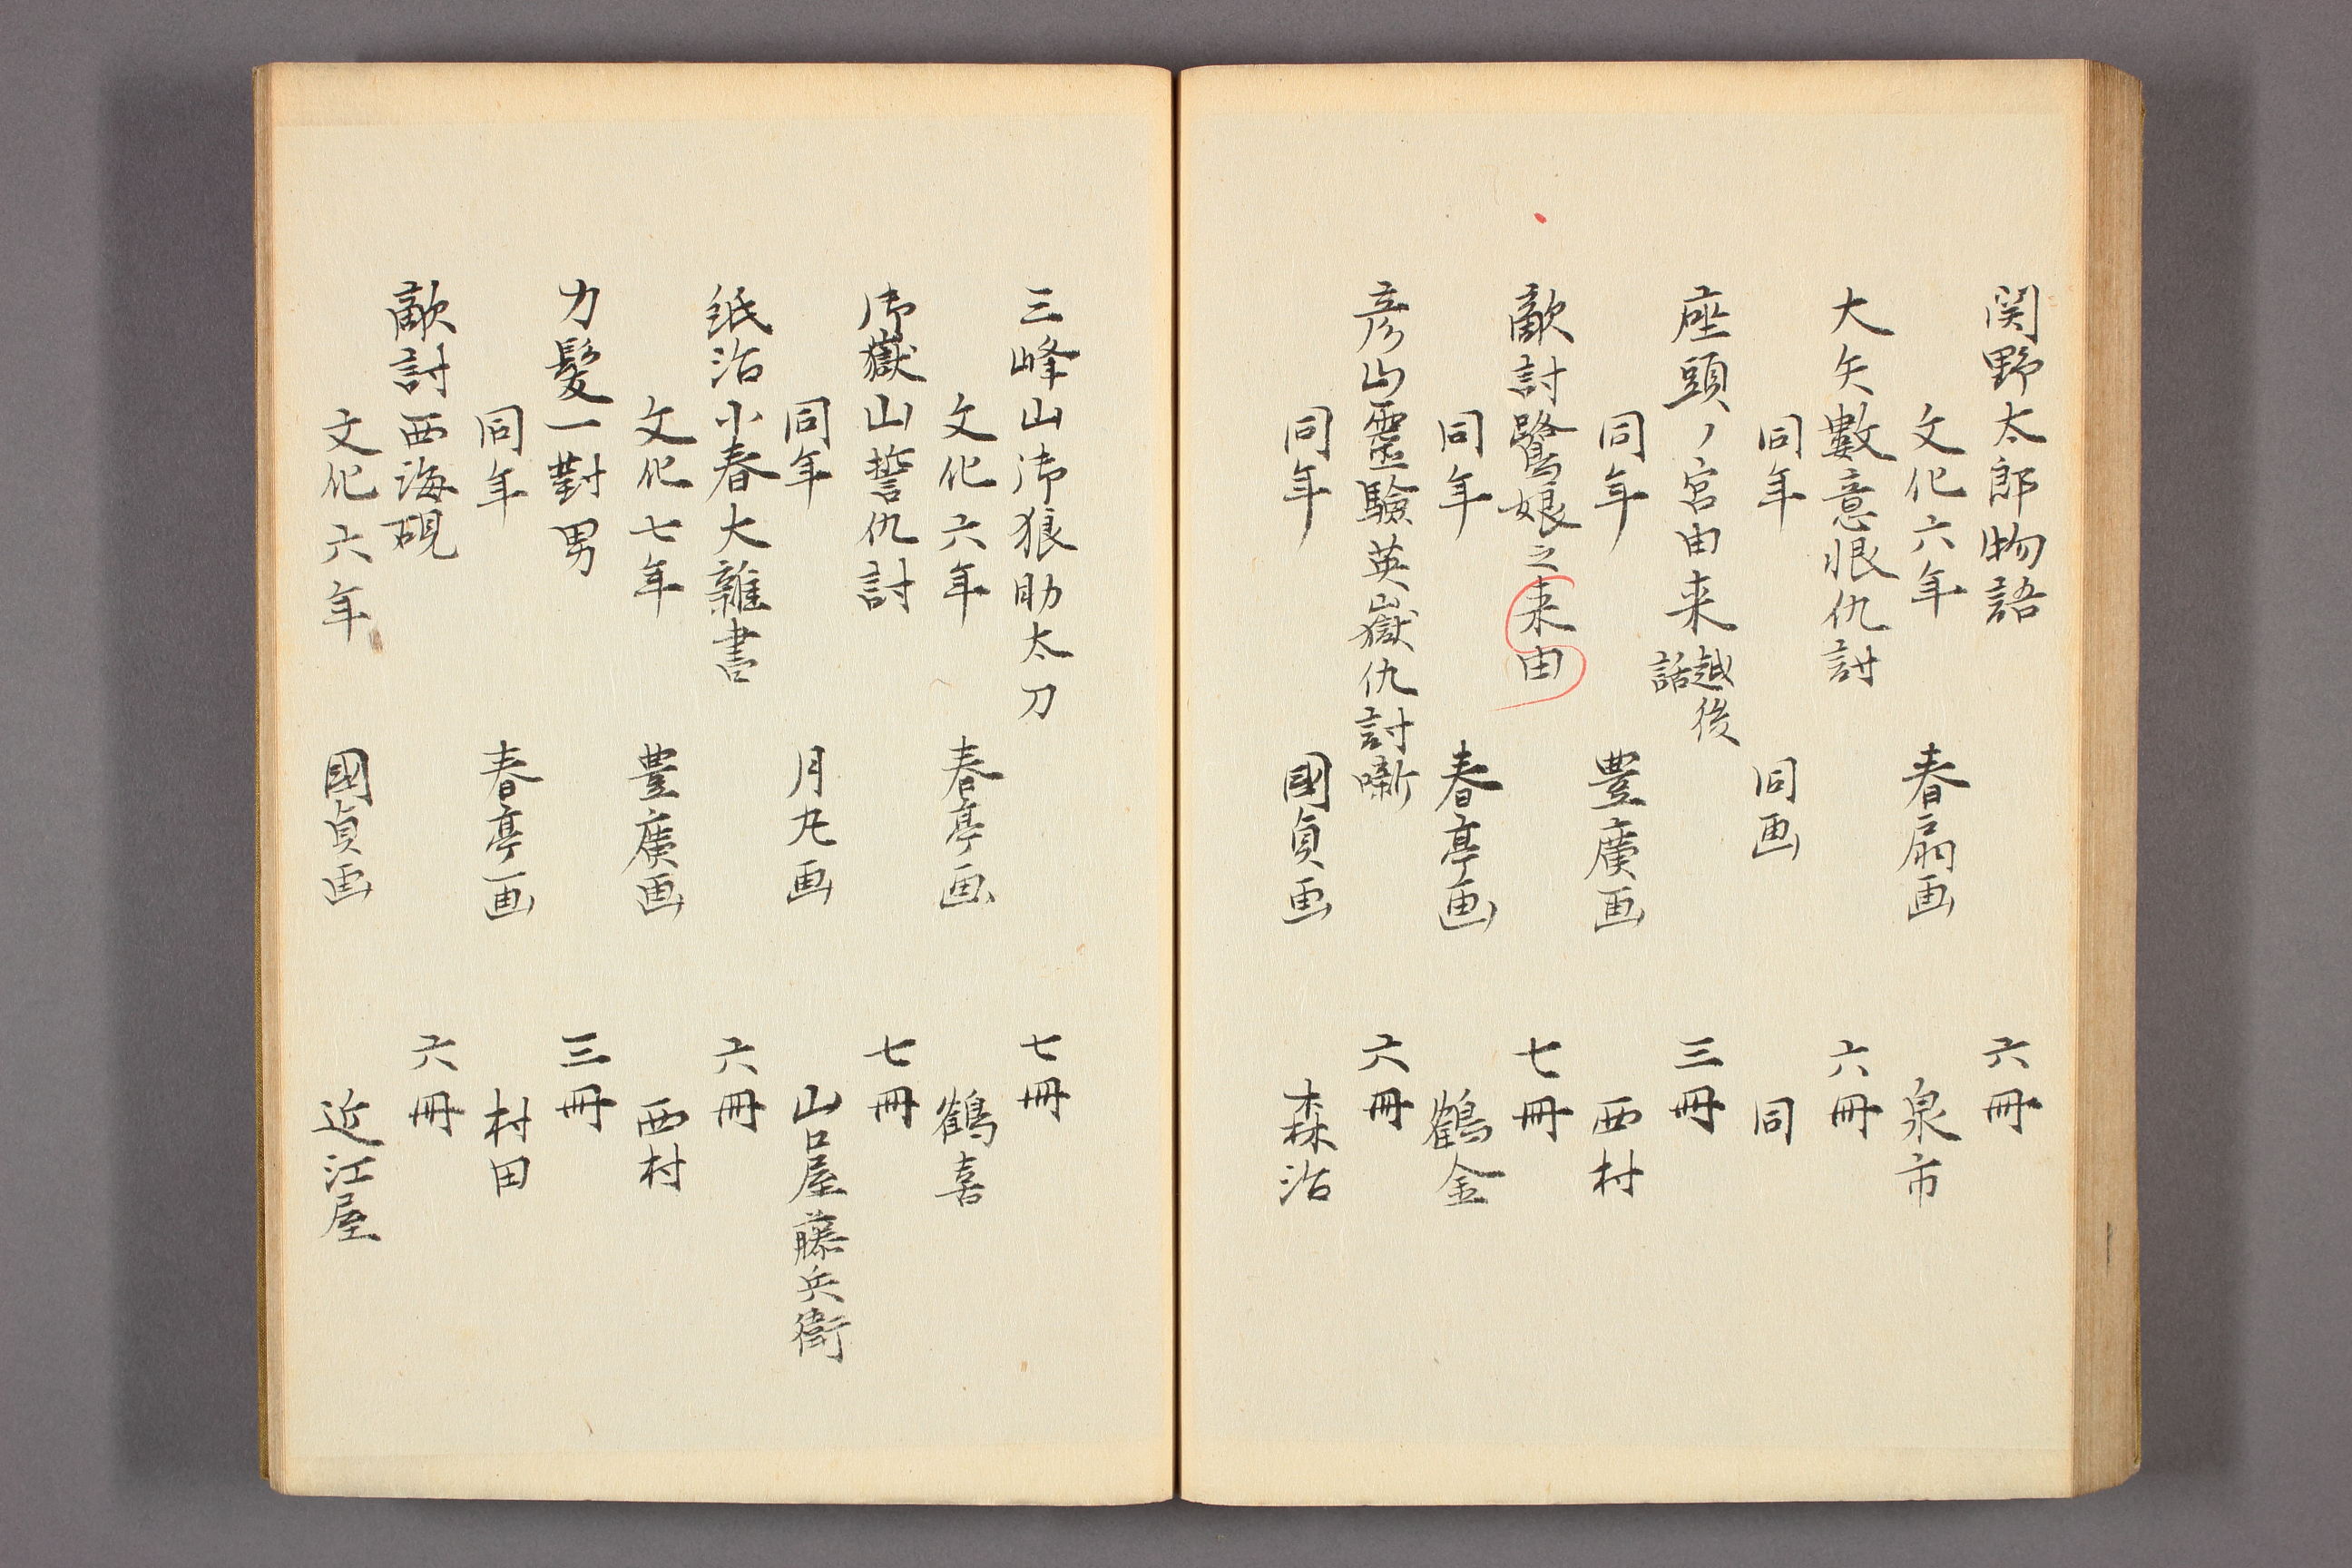 関野太郎物語 六冊
文化六年 春扇画 泉市
大矢數意恨仇討 六冊
同年 同画 同
座頭ノ宮由来 越後話 三冊
同年 豊廣画 西村
敵討鷺娘之来由 七冊
同年 春亭画 鶴金
彦山靈驗英嶽仇討噺 六冊
同年 國貞画 森治
三峰山御狼助太刀 七冊
文化六年 春亭画 鶴喜
御嶽山誓仇討 七冊
同年 月丸画 山口屋藤兵衛
紙治小春大雜書 六冊
文化七年 豊廣画 西村
力髪一對男 三冊
同年 春亭画 村田
敵討西海硯 六冊
文化六年 國貞画 近江屋